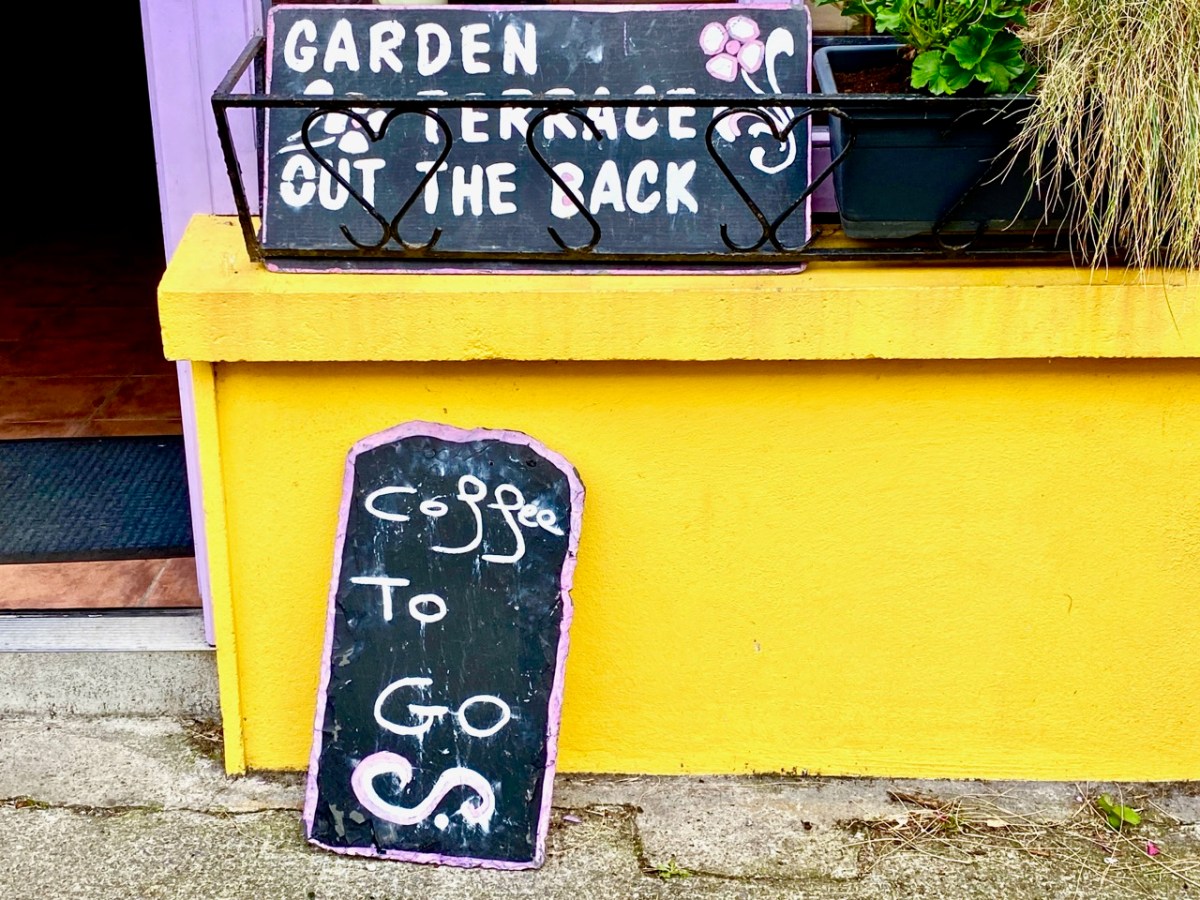 GARDEN
TERRACE
OUT THE BACK
Coffee
To
GO